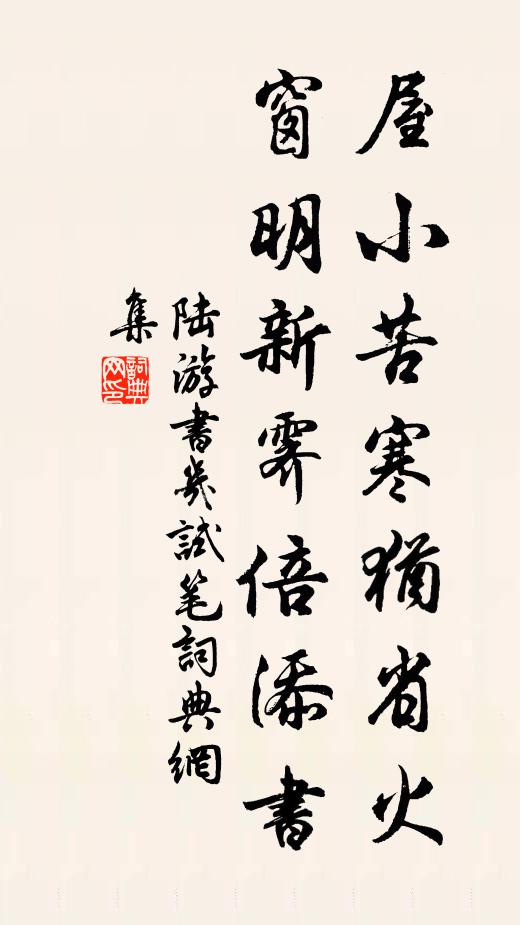 屋小苦寒猶省火
窗明新霽倍添書
陆游書几試笔詞典網
集
詞典
网印